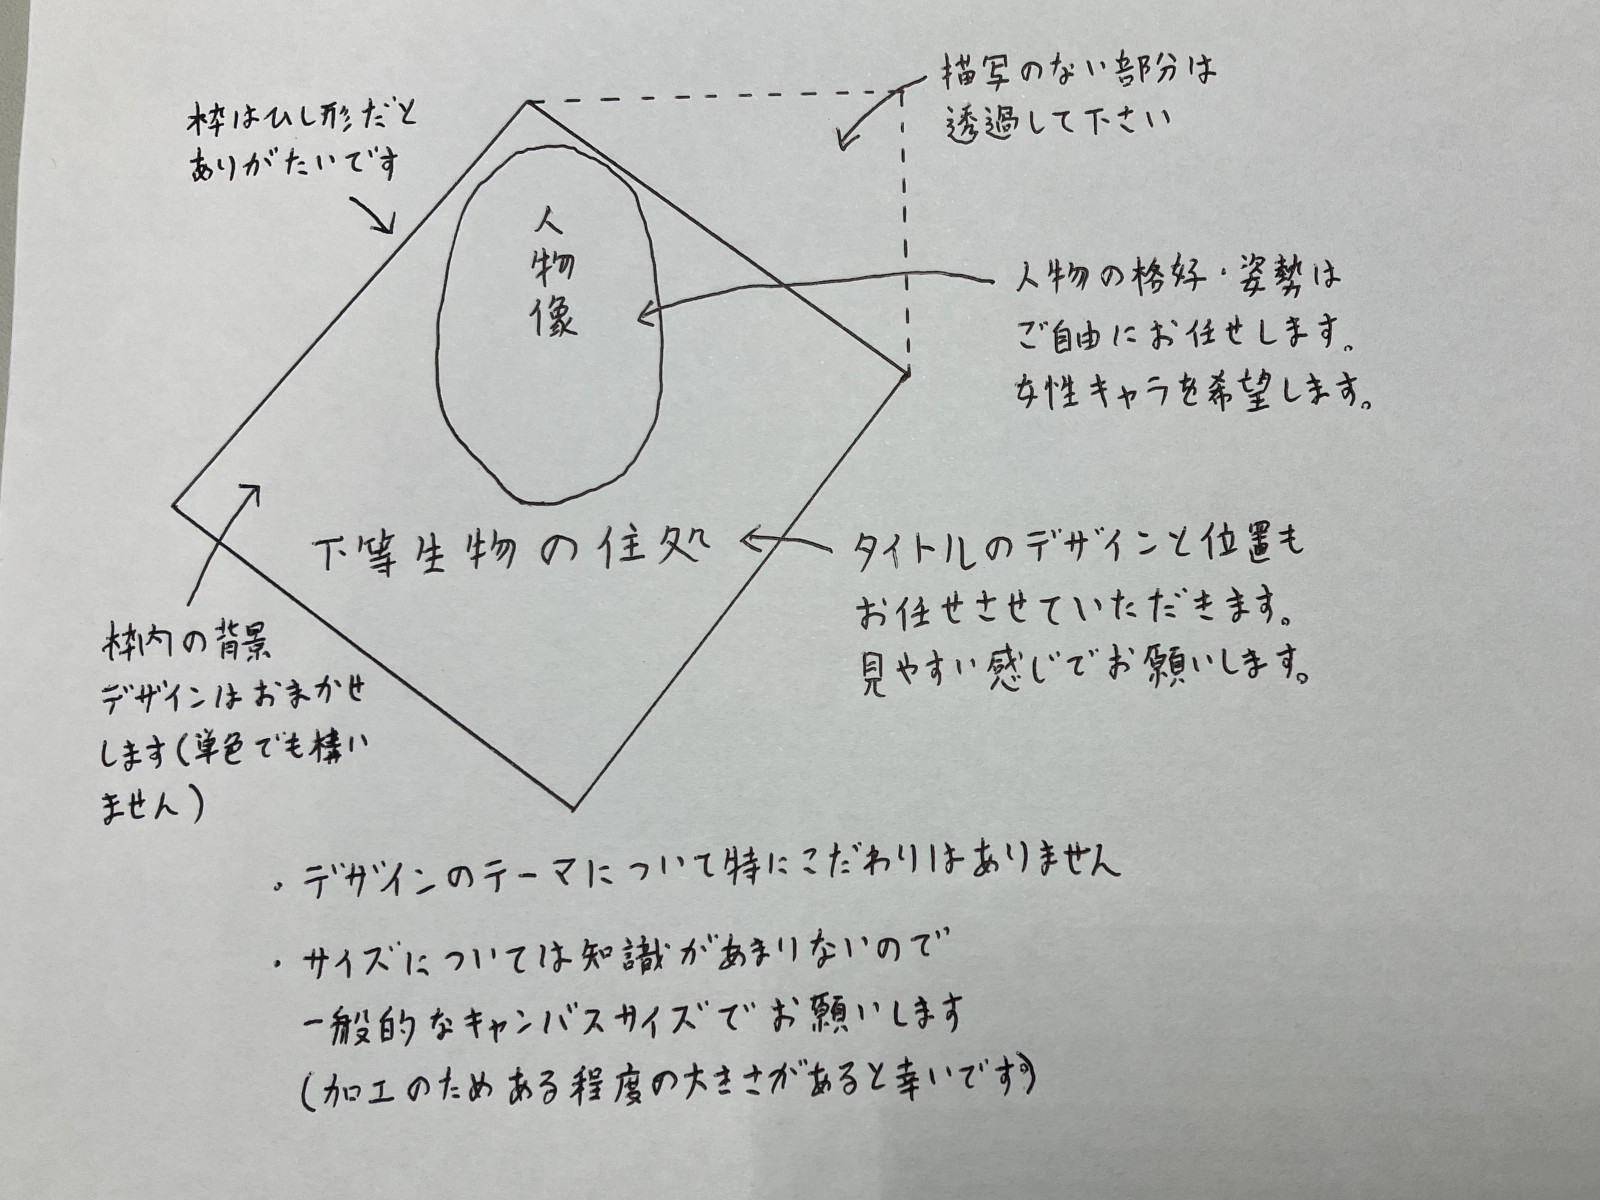 枠はひし形だと
ありがたいです
描写のない部分は
透過して下さい
人
物
像
人物の格好・姿勢は
ご自由にお任せします。
女性キャラを希望します。
下等生物の住処
タイトルのデザインと位置も
お任せさせていただきます。
見やすい感じでお願いします。
枠内の背景
デザインはおまかせ
します(単色でも構い
ません)
・デザインのテーマについて特にこだわりはありません
・サイズについては知識があまりないので
一般的なキャンバスサイズでお願いします
(加工のためある程度の大きさがあると幸いです)